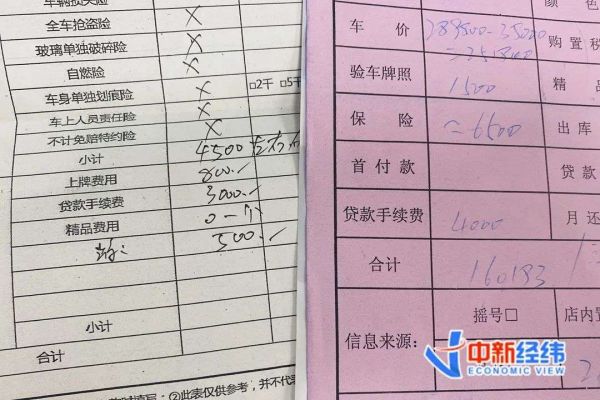 车辆损失险
全车抢盗险 ×
玻璃单独破碎险 ×
自燃险 ×
车身单独划痕险 × □2千 □5千
车上人员责任险 ×
不计免赔特约险 ×
小计 4500 左右
上牌费用 800.
贷款手续费 3000.
精品费用 0一个
500.
小计
合计
②此表仅供参考，并不代表
颜色
车价 289500-35000 购置税
验车牌照 1500 精品
保险 ≈6500 出库
首付款 贷款
贷款手续费 4000 月还
合计 160183
摇号□ 店内置
信息来源：
中新经纬
ECONOMIC VIEW